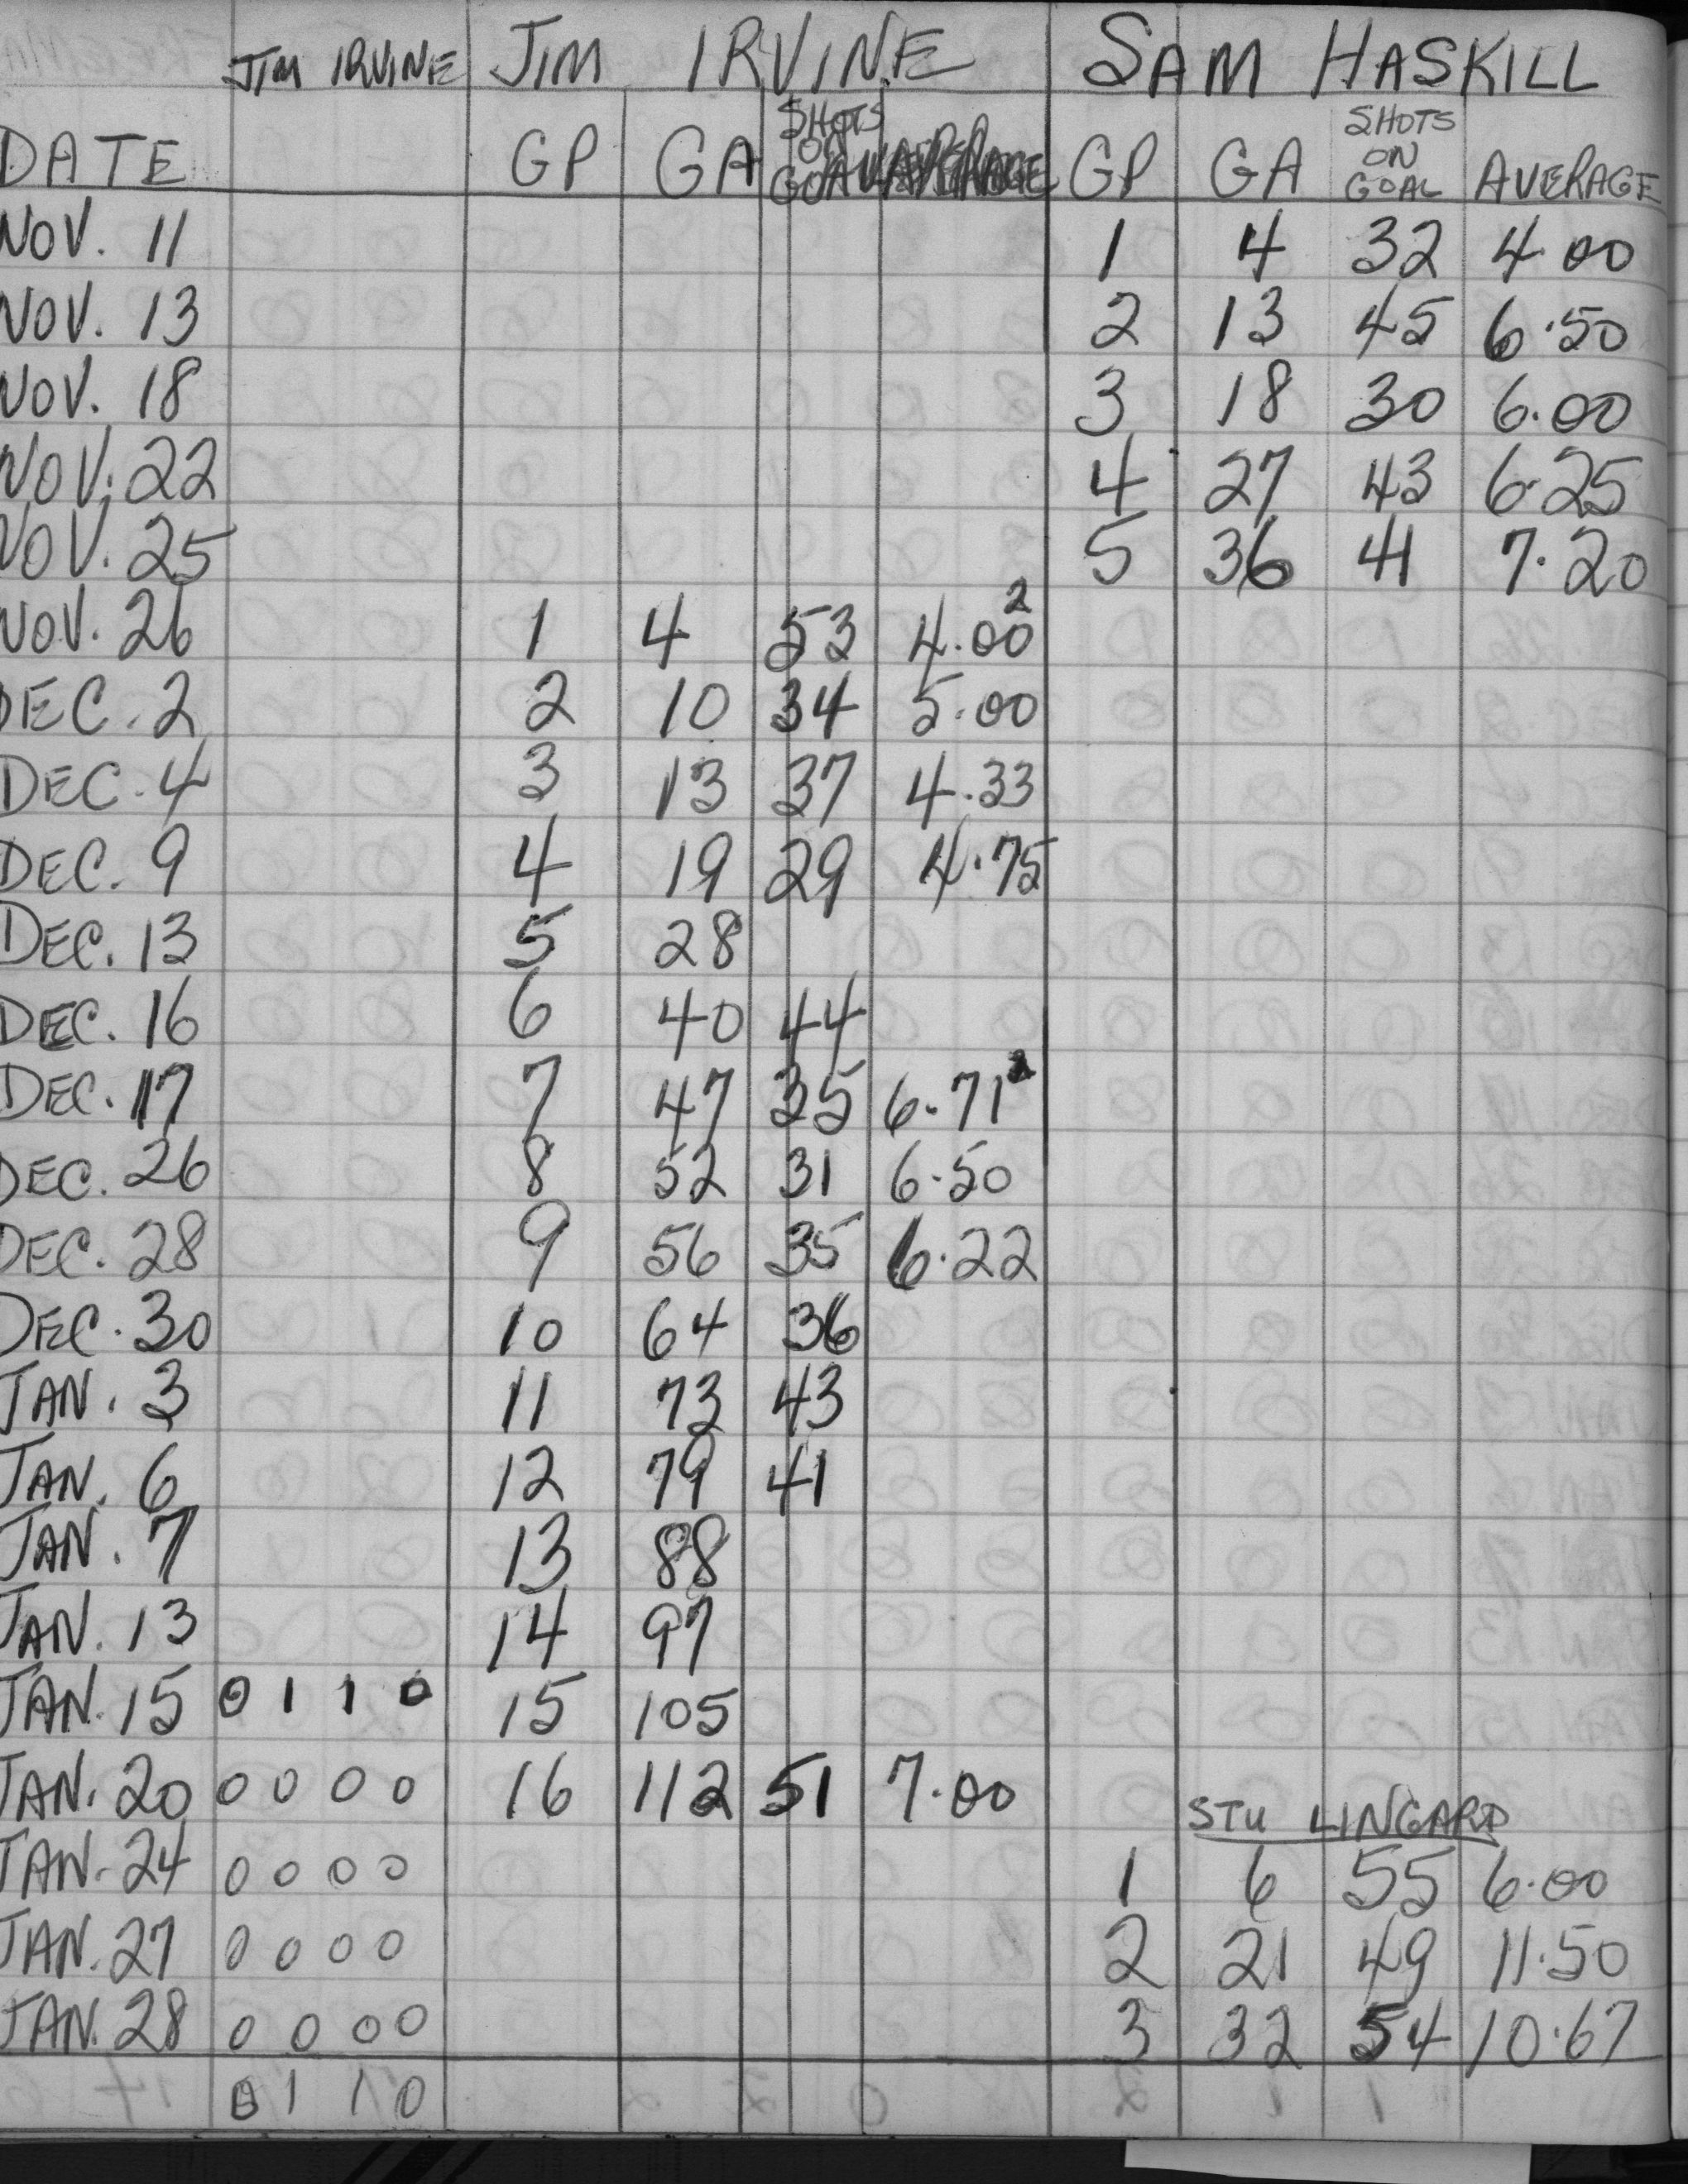 JIM IRVINE JIM IRVINE SAM HASKILL
DATE GP GA SHOTS ON GOAL AVERAGE GP GA SHOTS ON GOAL AVERAGE
NOV. 11 1 4 32 4.00
NOV. 13 2 13 45 6.50
NOV. 18 3 18 30 6.00
NOV. 22 4 27 43 6.25
NOV. 25 5 36 41 7.20
NOV. 26 1 4 53 4.00 2
DEC. 2 2 10 34 5.00
DEC. 4 3 13 37 4.33
DEC. 9 4 19 29 4.75
DEC. 13 5 28
DEC. 16 6 40 44
DEC. 17 7 47 35 6.71 2
DEC. 26 8 52 31 6.50
DEC. 28 9 56 35 6.22
DEC. 30 10 64 36
JAN. 3 11 73 43
JAN. 6 12 79 41
JAN. 7 13 88
JAN. 13 14 97
JAN. 15 0 1 1 0 15 105
JAN. 20 0 0 0 0 16 112 51 7.00
STU LINGARD
JAN. 24 0 0 0 0 1 6 55 6.00
JAN. 27 0 0 0 0 2 21 49 11.50
JAN. 28 0 0 0 0 3 32 54 10.67
0 1 1 0